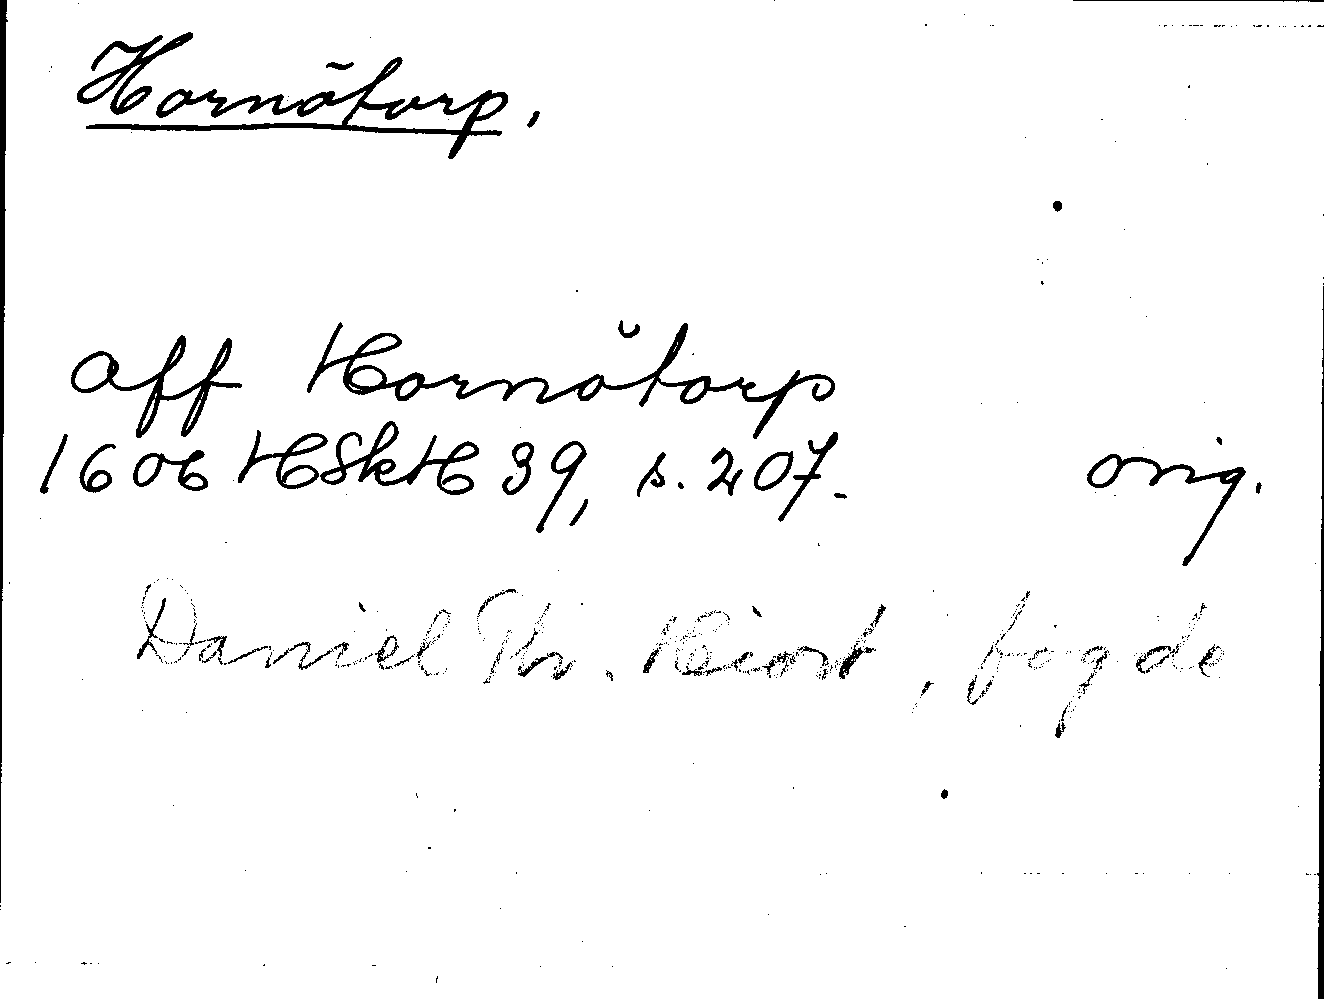 Hornötorp.
aff Hornötorp
1606 HSkH 39, s. 207. orig.
Daniel Thr. Hiort, fogde